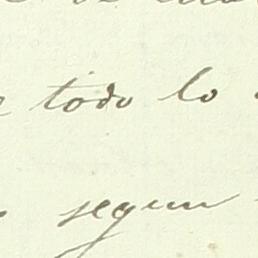 todo lo
segun